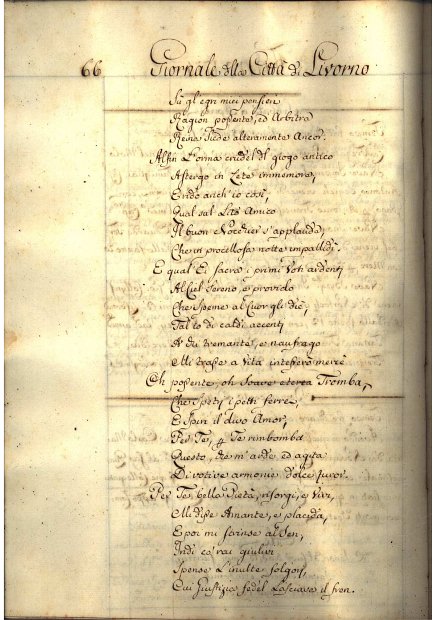 66 Giornale della Città di Livorno
Su gl'egri miei pensieri
Ragion possente, ed Arbitra
Reina siede alteramente Ancor.
Alfin l'orma crudel del giogo antico
Aspergo in Lete immemore,
E rido anch'io così,
Qual sul Lito Amico
Il buon Nocchier s'applaude,
Che in procellosa notte impallidì.
E qual Ei sacra i primi Voti ardenti
Al Ciel sereno, e provido
Che speme al Cuor gli diè,
Tal io di caldi accenti
A chi tremante, e naufrago
Mi trasse a Vita intesserò mercè
Oh possente, oh soave eterea Tromba,
Che i petti ferrei,
E spiri il divo Amor,
Per Te, per Te rimbomba
Questo, che m'arde, ed agita
Di votive armonie dolce furor.
Per Te, bella Pietà, risorgi, e Vivi,
Mi disse Amante, e placida,
E poi mi strinse al Sen,
Indi co' rai giulivi
Spense l'inulte folgori,
Cui Giustizia fedel Lasciava il fren.